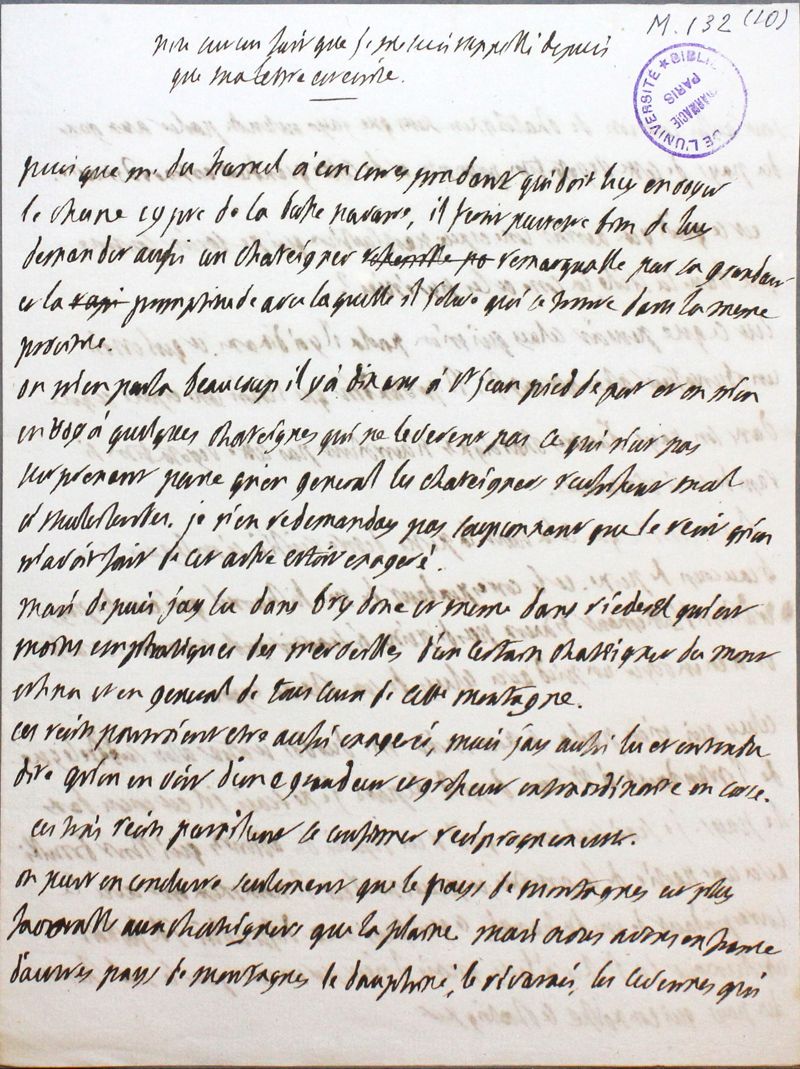 M. 132 (10)
BIBLIO PHARMACIE PARIS DE L'UNIVERSITÉ
note sur un fait que je me suis rappellé depuis
que ma lettre est ecrite.
puisque m. du hamel a un correspondant qui doit luy envoyer
le chesne cypre de la basse navarre, il feroit peutetre bien de luy
demander aussi un chateigner remarquable par sa grandeur
et la promptitude avec laquelle il s'eleve qui se trouve dans la meme
province.
on m'en parla beaucoup il y a dix ans a St jean pied de port et on m'en
envoya quelques chateignes qui ne leverent pas ce qui n'est pas
surprenant parce qu'en general les chateignes reussissent mal
je n'en redemanday pas soupconnant que le recit qu'on
m'avoit fait de cet arbre estoit exageré.
mais depuis jay lu dans brydone et meme dans riedesel qui est
moins emphatique des merveilles d'un certain chateigner du mont
ethna et en general de tous ceux de cette montagne.
ces recits pourroient etre aussi exagerés, mais jay aussi lu et entendu
dire qu'on en voit d'une grandeur et grosseur extraordinaire en corse.
ces trois recits paroissent se confirmer reciproquement.
on peut en conclure seulement que le pays de montagnes est plus
favorable aux chateigners que la plaine mais nous avons en france
d'autres pays de montagnes le dauphiné, le vivarais, les cevennes qui